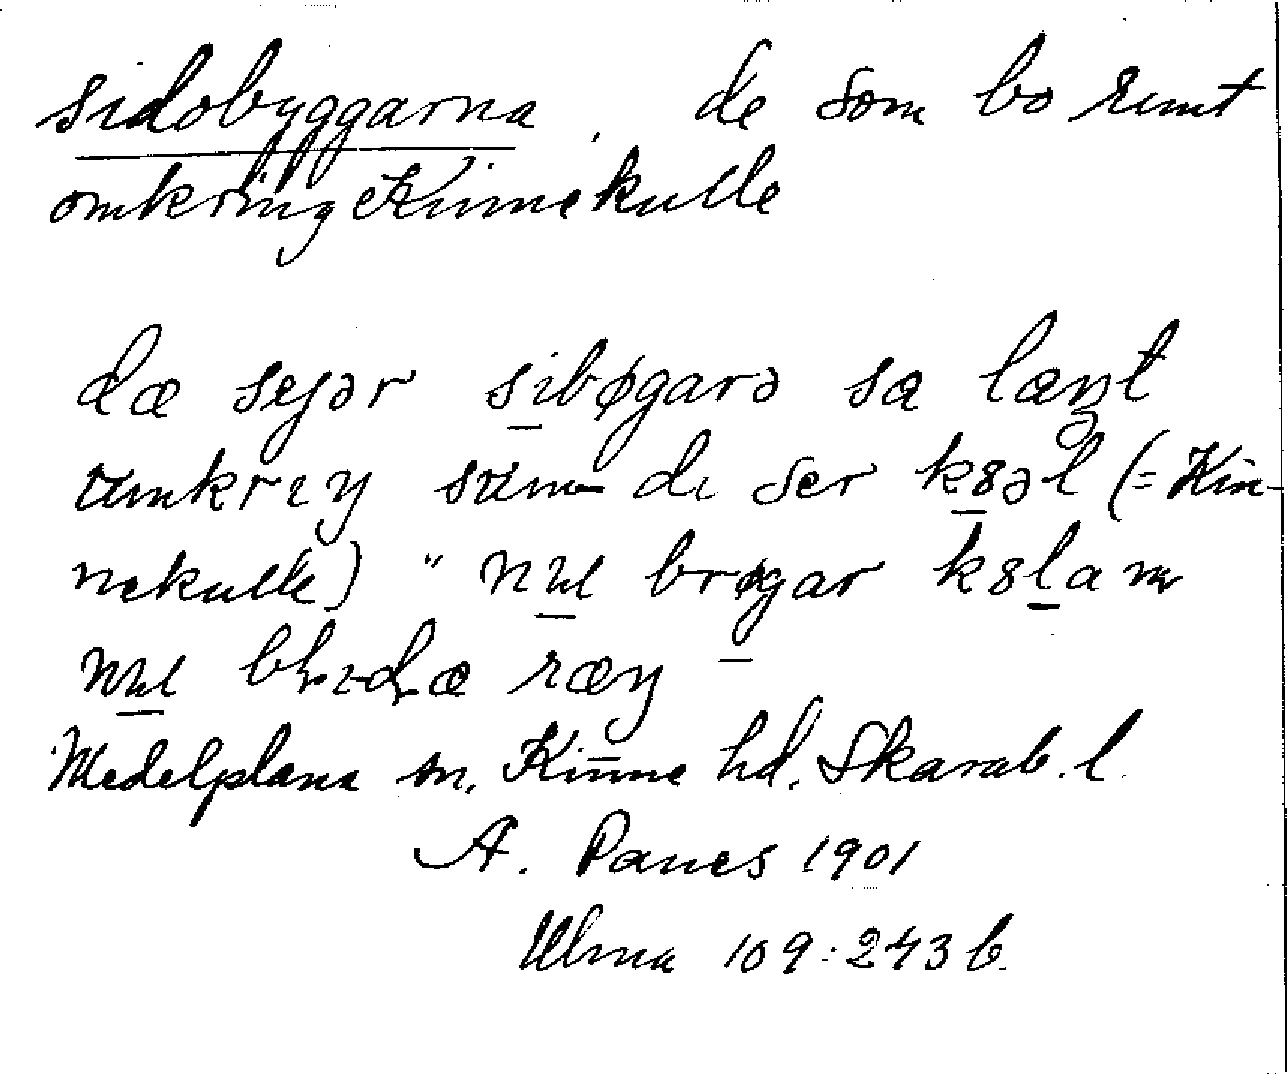 sidobyggarna, de som bo runt
omkring Kinnekulle
dæ sejər sibøgarə sa læŋt
umkrıŋ sum di ser k8əl (= Kin-
nekulle) " brøgar k8lam
ræŋ
Medelplana sn, Kinne hd. Skarab. l.
A. Panes 1901
Ulma 109:243 b.